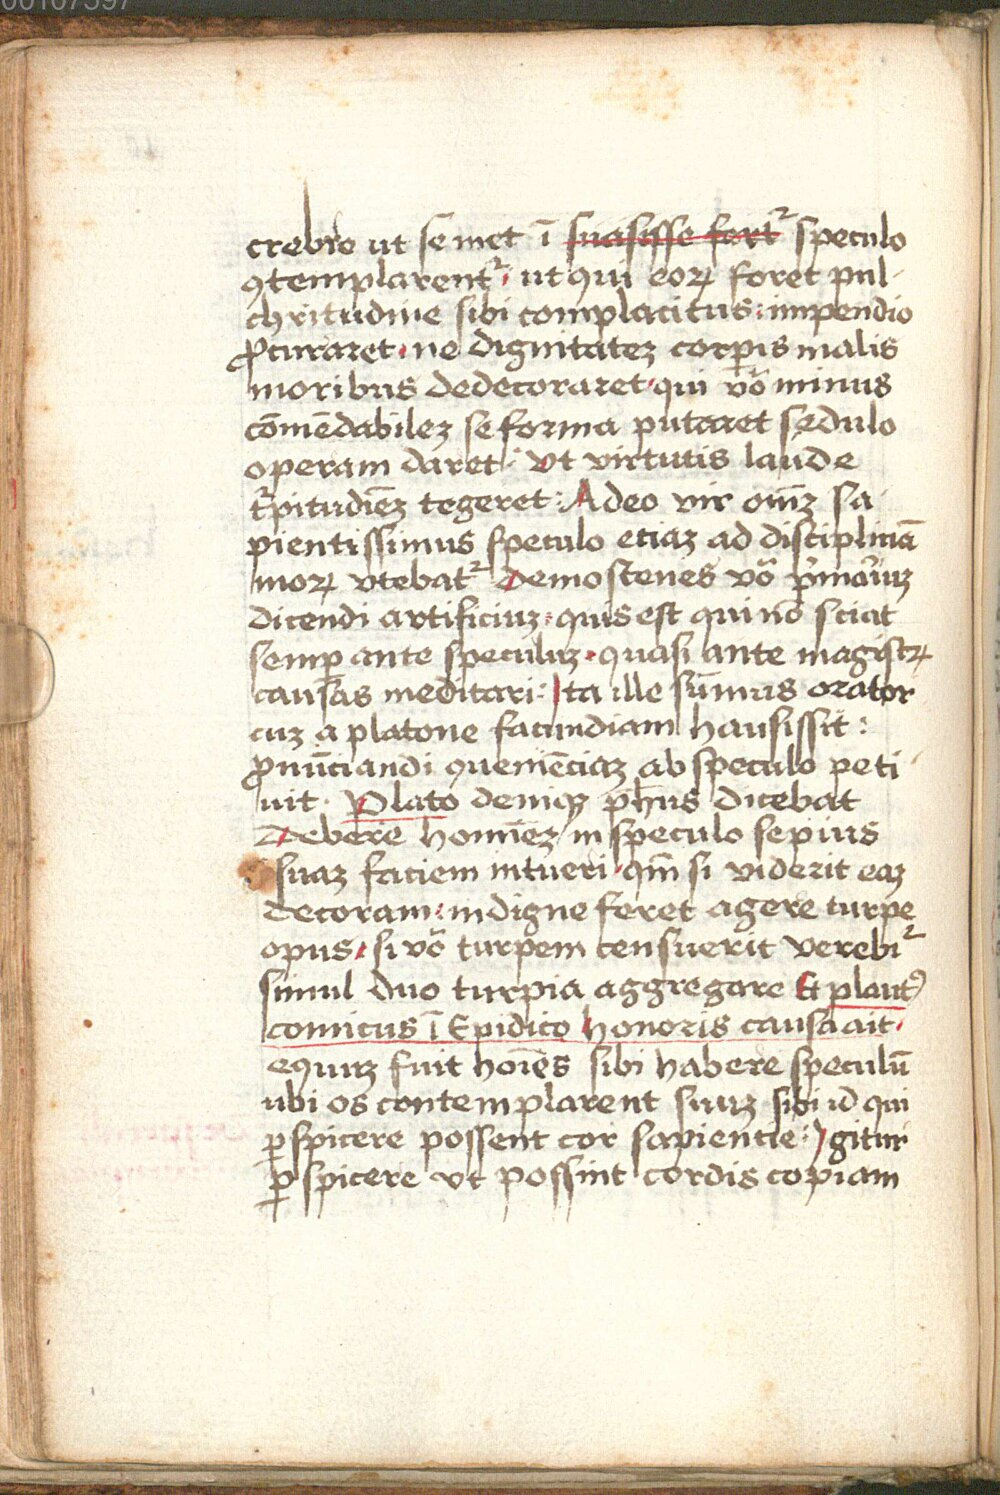 crebro ut semet ī suasisse fert᷑ speculo
ꝯtemplarent᷑. ut qui eoꝝ foret pul-
chritudine sibi complacitus: impendio
ꝓcuraret. ne dignitatez corꝑis malis
moribus dedecoraret. qui vo᷑ minus
cōmēdabilez se forma putaret sedulo
operam daret. vt virtutis laude
t᷑pitudīez tegeret: Adeo vir om̄iz sa
pientissimus speculo etiaz ad disciplinā
moꝝ vtebat᷑ Demostenes vo᷑ p᷑mariuz
dicendi artificiuz: quis est qui nō sciat
semꝑ ante speculuz. quasi ante magistꝝ
causas meditari: Ita ille sūmus orator
cuz a platone facundiam hausissit:
ꝓnūciandi queniēciaz ab speculo peti
uit. Plato deniqꝫ ph̄us dicebat
Debere homīez in speculo sepius
suaz faciem intueri. qm̄ si viderit eaz
decoram: indigne feret agere turpe
opus. si vo᷑ turpem censuerit verebi᷑
simul duo turpia aggregare Et plautꝰ
comicus ī Epidico honoris causa ait.
equuz fuit hoīes sibi habere speculū
ubi os contemplarent suuz sibi id qui
ꝑspicere possent cor sapientie: Igitur
ꝑspicere vt possint cordis copiam